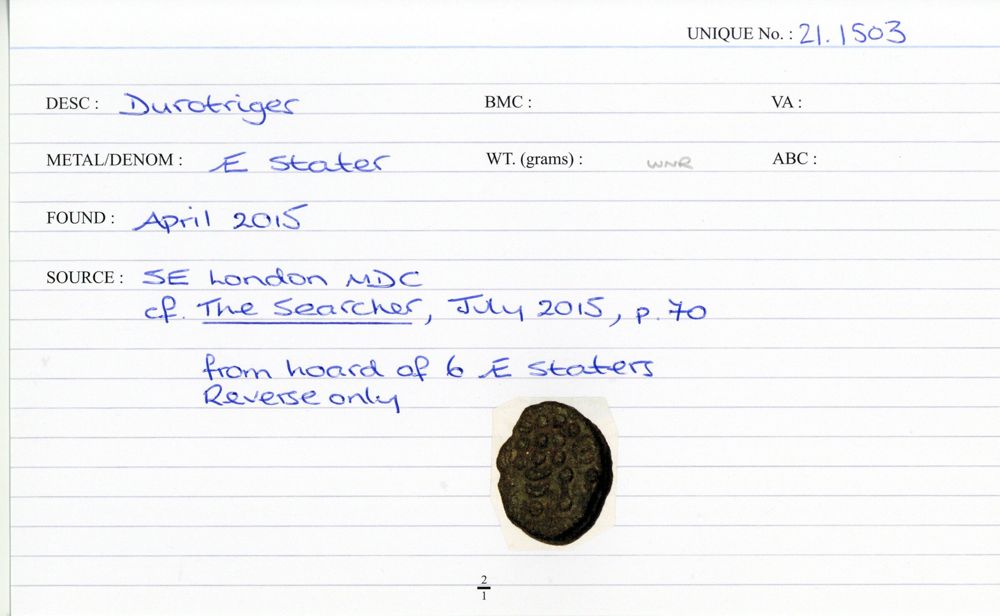 UNIQUE No. : 21.1503
DESC : Durotriger BMC : VA :
METAL/DENOM : Æ Stater WT. (grams) : WNR ABC :
FOUND : April 2015
SOURCE : SE London MDC
cf. The Searcher, July 2015, p. 70
from hoard of 6 Æ staters
Reverse only
2
1